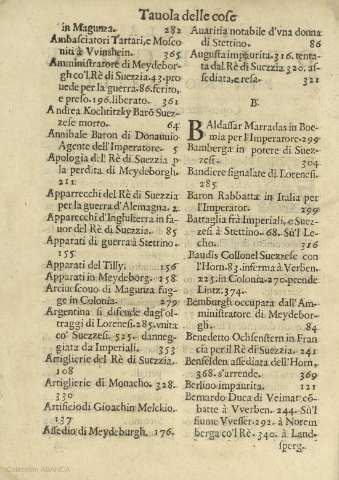 Tauola delle cose
in Magunza. 282
Ambasciatori Tartari, e Mosco
niti à Vvinshein. 365
Amministratore di Meydebor-
gh co'l Rè di Suezzia. 43. pro
uede per la guerra. 86. ferito,
e preso. 196. liberato. 361
Andrea Kochtitzky Barõ Suez-
zese morto. 64
Annibale Baron di Donauuio
Agente dell'Imperatore. 5
Apologia del Rè di Suezzia p
la perdita di Meydeborgh.
211
Apparecchi del Rè di Suezzia
per la guerra d'Alemagna. 2
Apparecchi d'Inghilterra in fa-
uor del Rè di Suezzia. 85
Apparati di guerra à Stettino.
155
Apparati del Tilly. 156
Apparati in Meydeborg. 258
Arciuescouo di Magunza fugg
ge in Colonia. 279
Argentina si difende dagl'ol-
traggi di Lorenesi. 285. vnita
co' Suezzesi. 525. danneg-
giata da Imperiali. 353
Artiglierie del Rè di Suezzia.
108
Artiglierie di Monacho. 328.
330
Artificio di Gioachin Melckio.
137
Assedio di Meydeburgh. 176.
Auaritia notabile d'vna donna
di Stettino. 86
Augusta impaurita. 316. tenta-
ta dal Rè di Suezzia 320. as-
sediata, e resa. 321
B
BAldassar Marradas in Boe-
mia per l'Imperatore. 299
Bamberga in potere di Suez-
zesi. 304
Bandiere signalate di Lorenesi.
285
Baron Rabbatta in Italia per
l'Imperator. 299
Battaglia frà Imperiali, e Suez-
zesi à Stettino. 68. Sù'l Le-
cho. 316
Baudis Collonel Suezzese con
l'Horn. 83. inferma à Verben.
225. in Colonia. 270. prende
Lintz. 374.
Bemburgh occupara dall'Am-
ministratore di Meydebor-
gh. 84
Benedetto Ochsenstern in Fran
cia per il Rè di Suezzia. 241
Benfelden assediata dell'Horn.
368. s'arrende. 369
Berlino impaurita. 121
Bernardo Duca di Veimar cõ-
batte à Vverben. 244. Sù'l
fiume Vvesser. 292. à Norem
berga co'l Rè. 340. à Land-
sperg.
Colección ABANCA